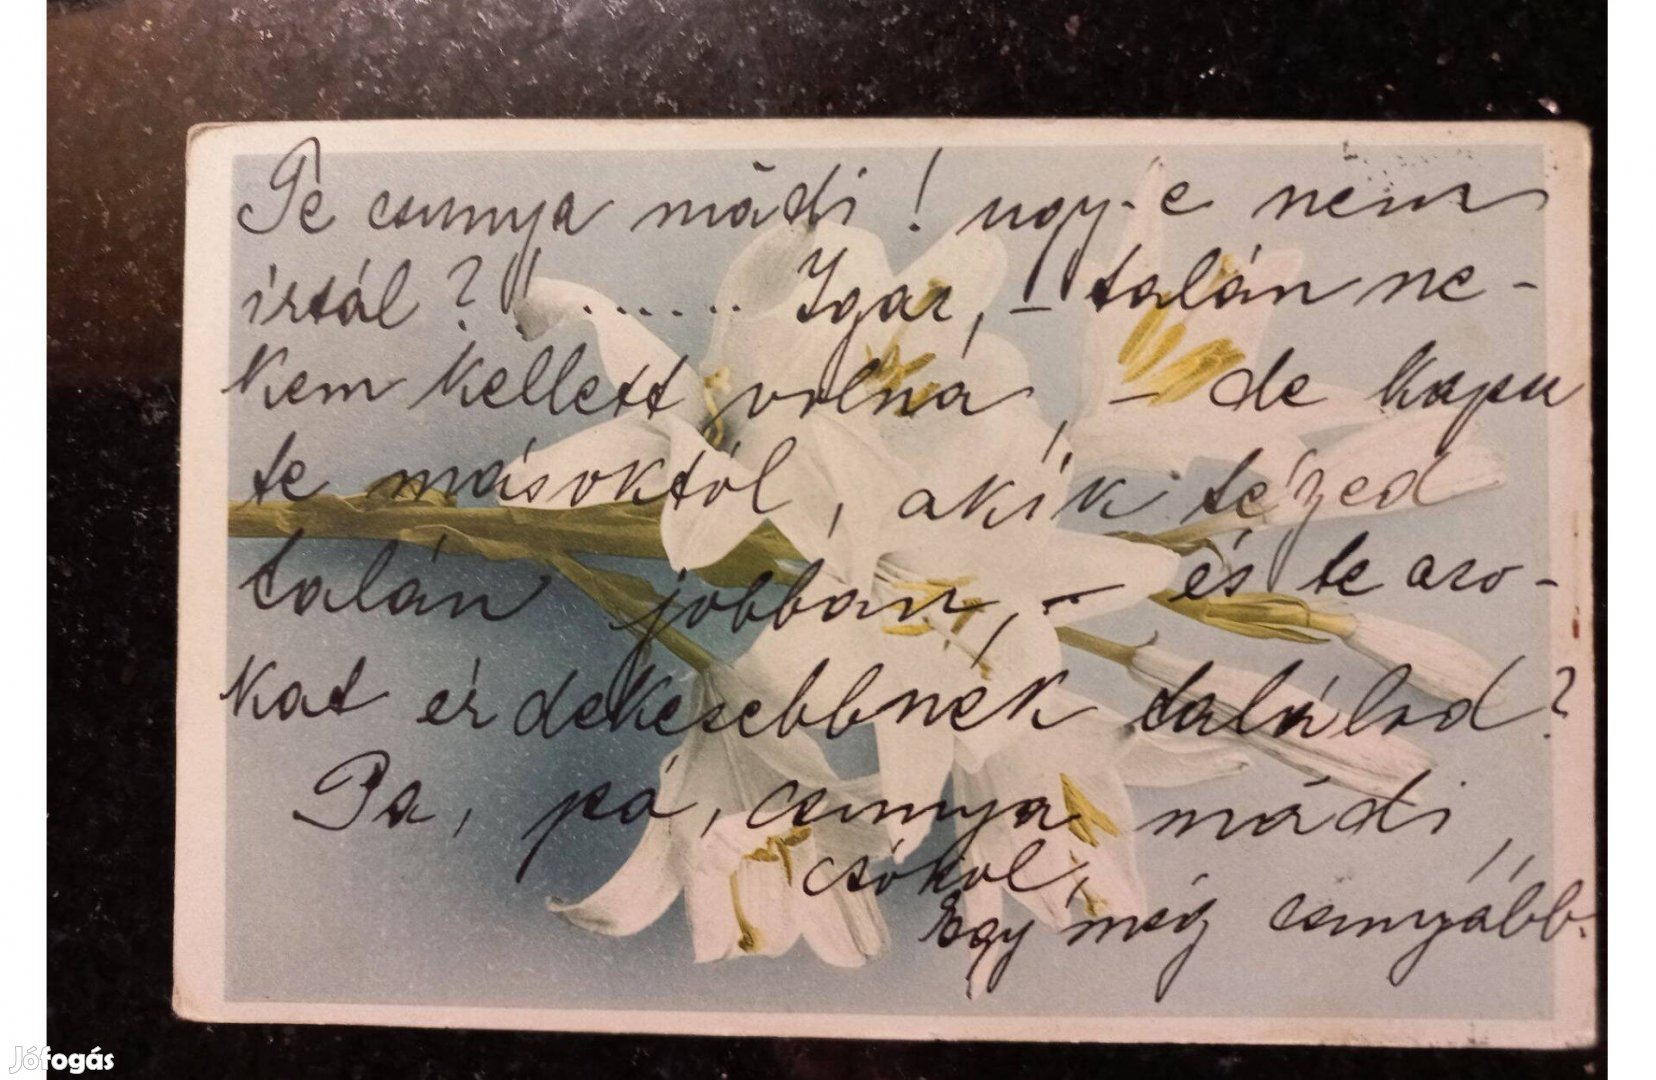 Te csunya mádi! ugy-e nem
irtál? ...... Igaz, – talán ne-
kem kellett volna, – de kapu
te másoktól, akik tézed
talán jobban, – és te azo-
kat érdekesebbnek találod?
Pa, pá, csunya mádi,
csókol,
Egy még csunyább.
Jófogás